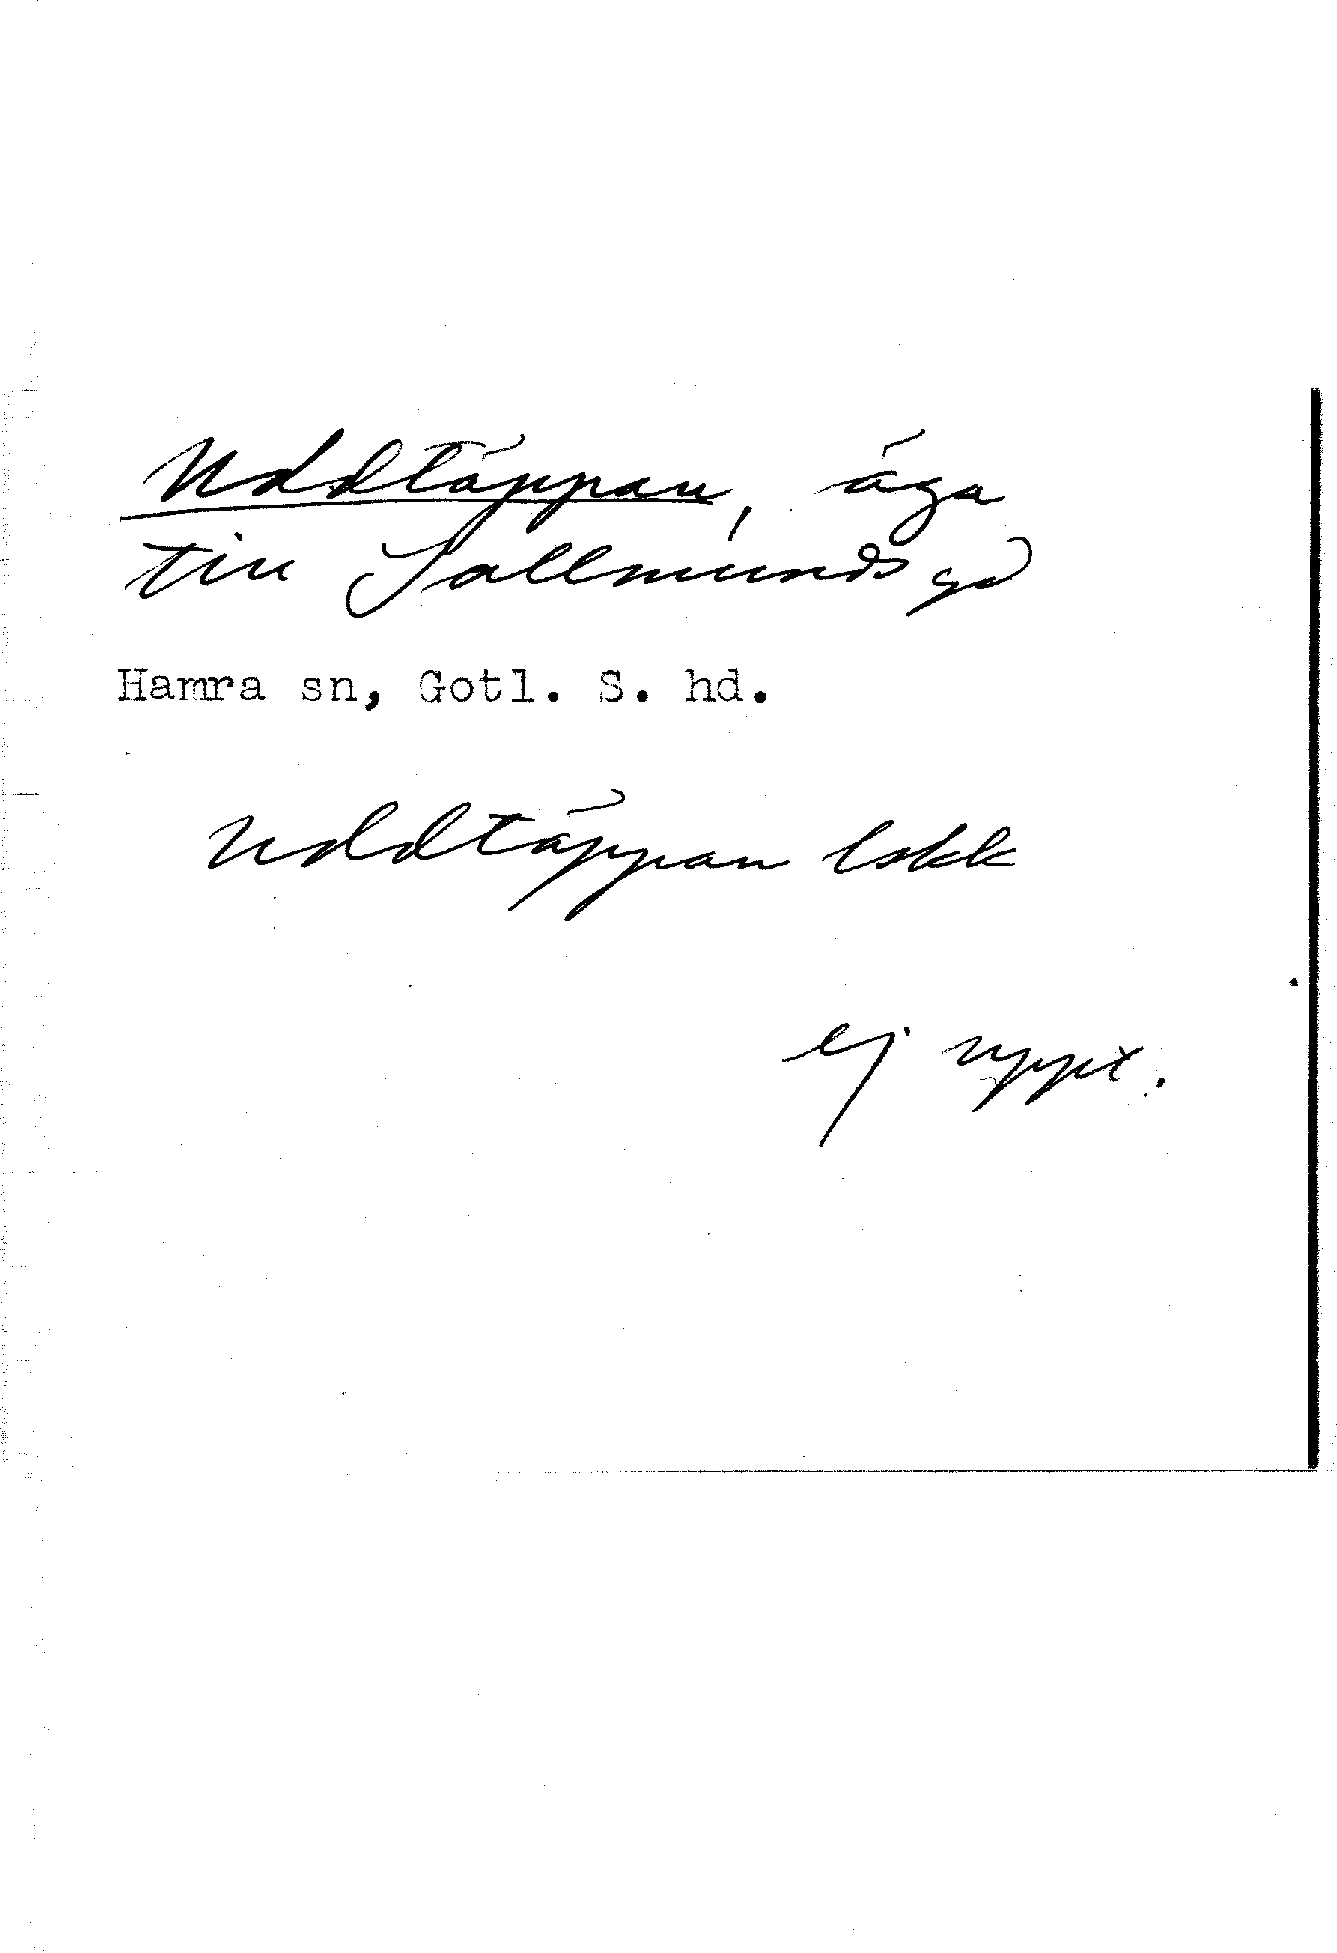 Uddtäppan, äga
till Sallmunds gd
Hamra sn, Gotl. S. hd.
Uddtäppan
ej uppt.